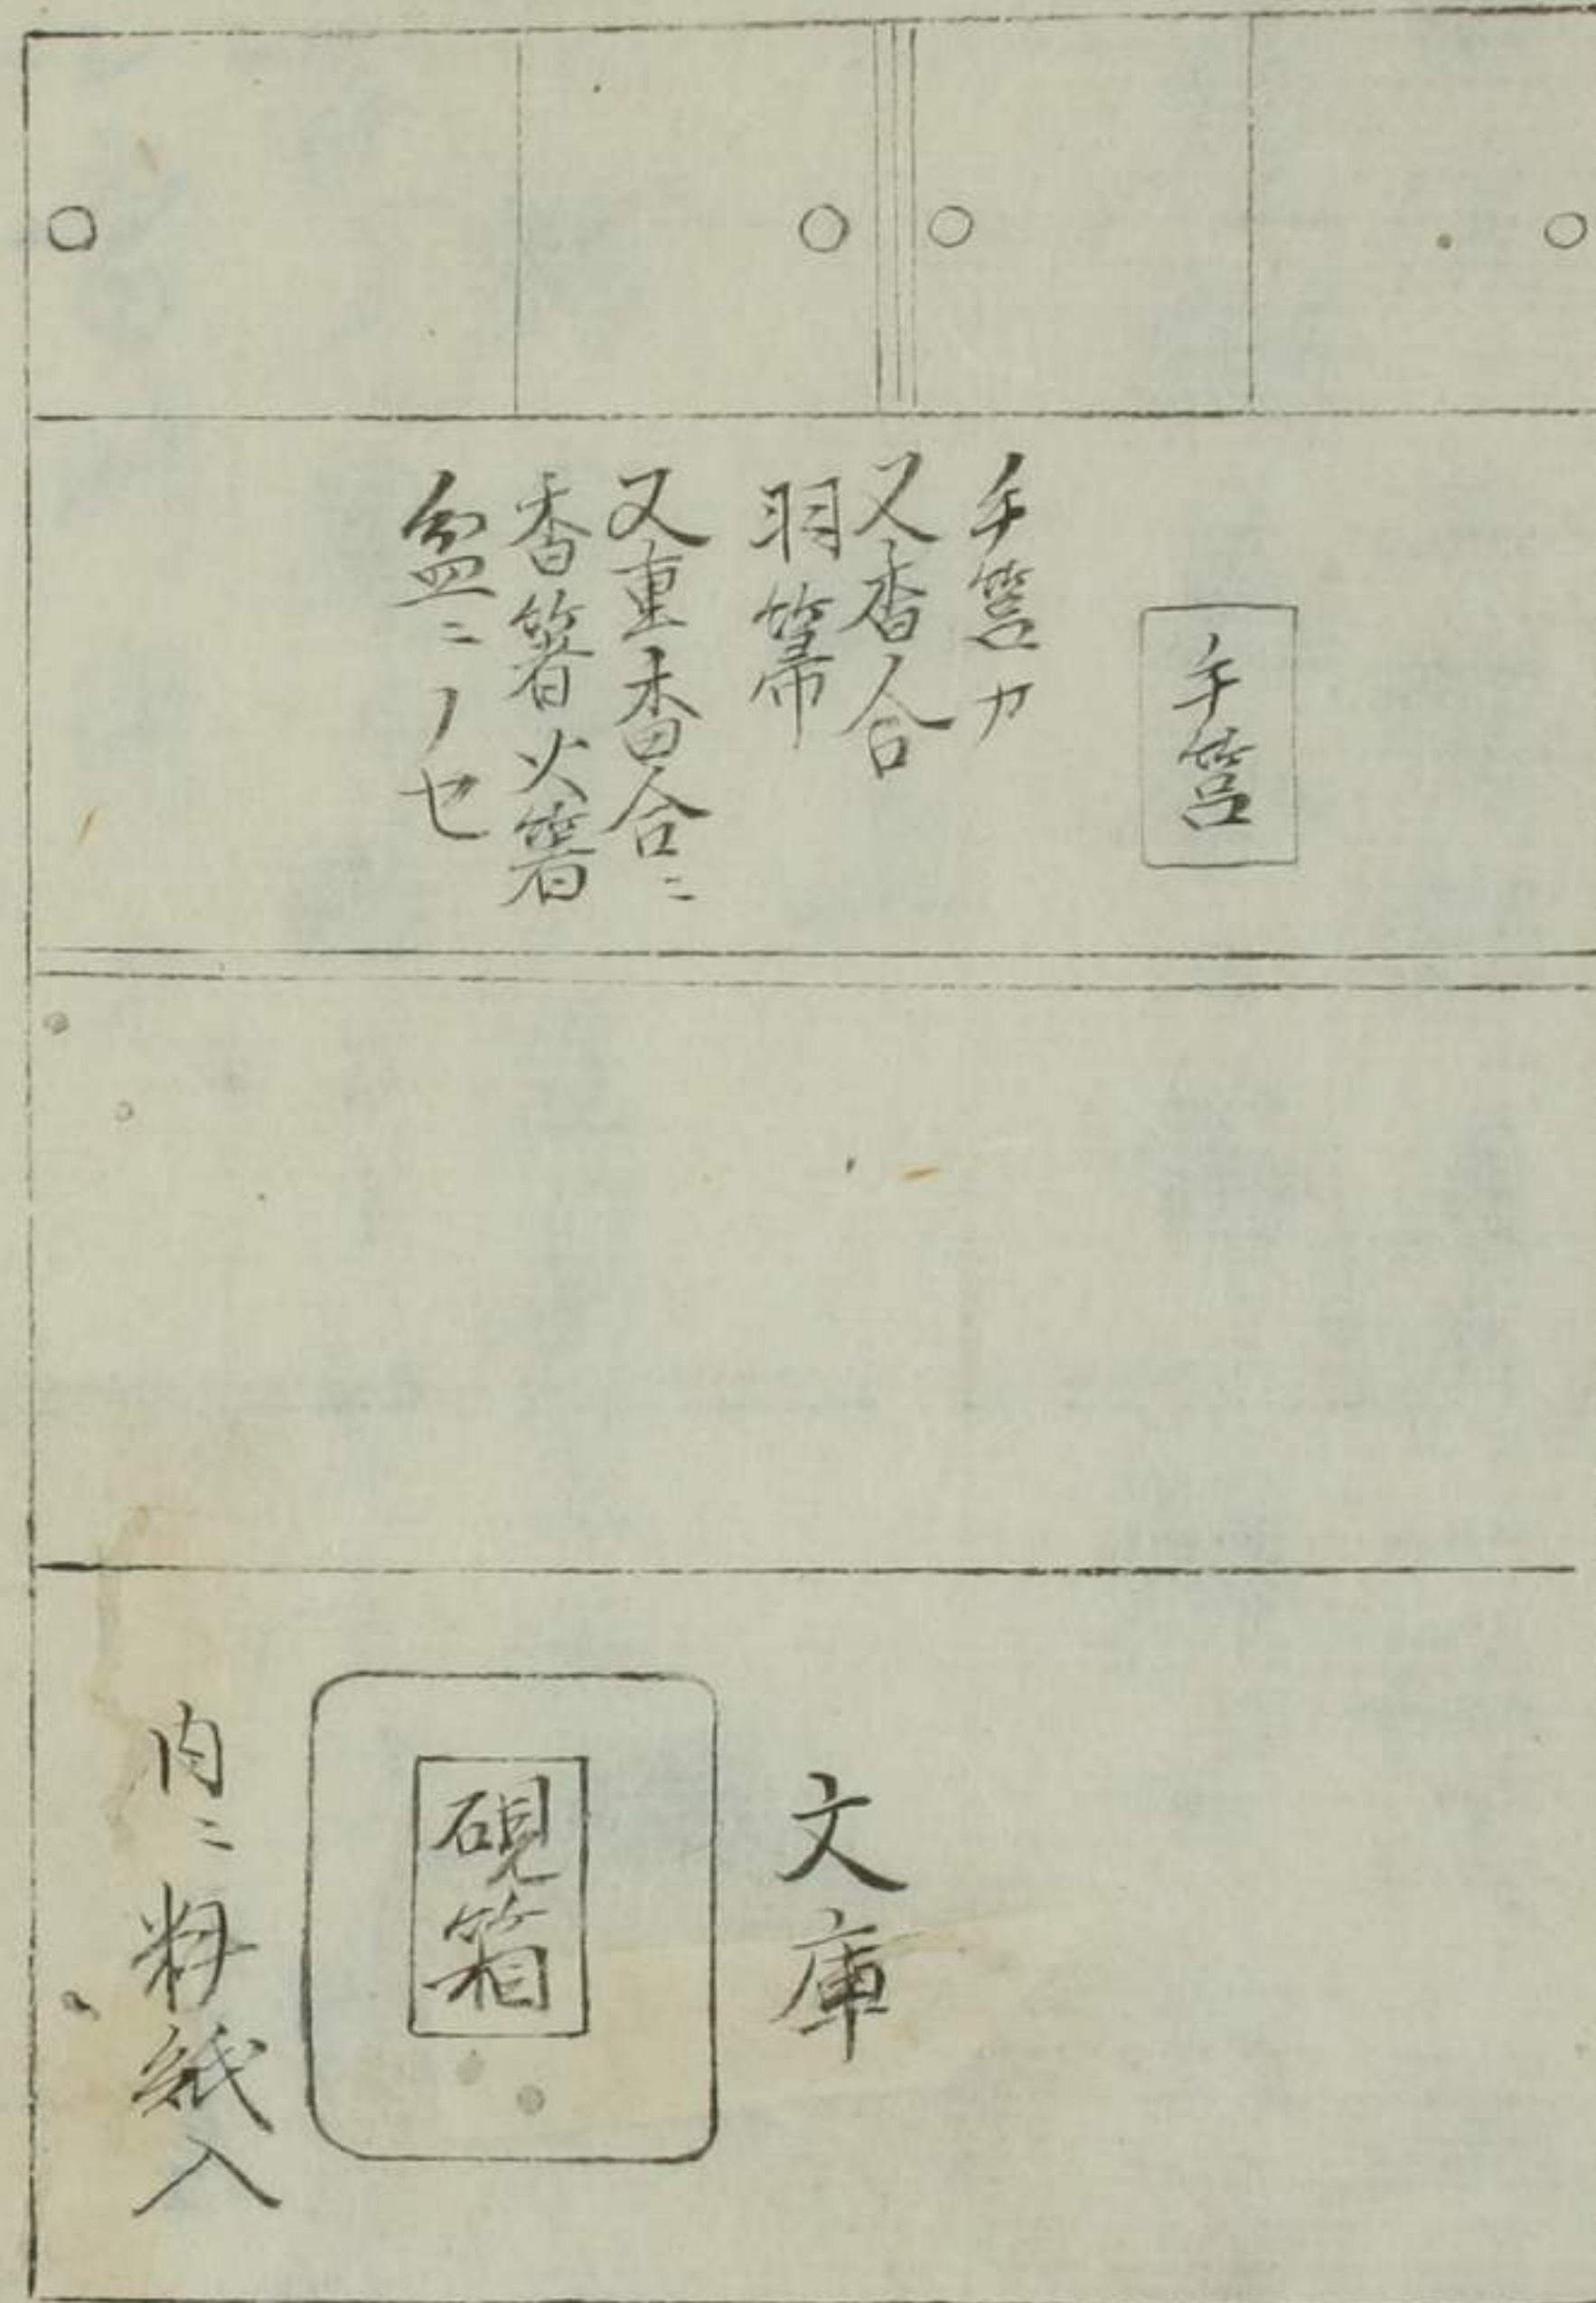 手筥
手筥カ
又香合
羽箒
又重香合ニ
香箸火箸
盆ニノセ
文庫
硯箱
内ニ料紙入